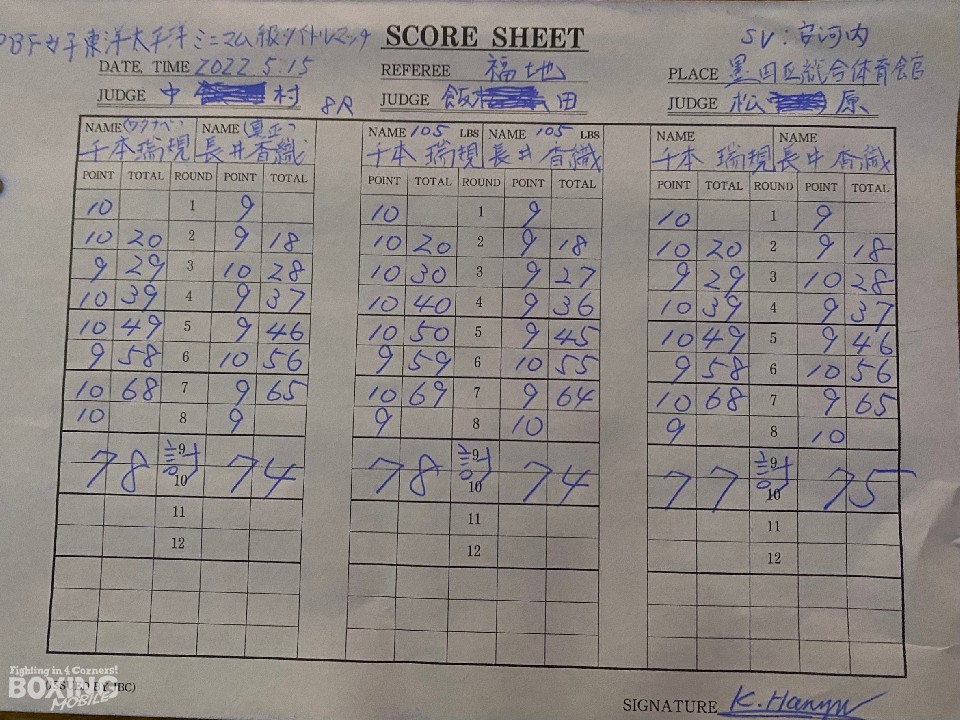 OPBF女子東洋太平洋ミニマム級タイトルマッチ SCORE SHEET SV:安河内
DATE, TIME 2022.5.15 REFEREE 福地 PLACE 墨田区総合体育館
JUDGE 中 村 8R JUDGE 飯 田 JUDGE 松 原
NAME (ワタナベ) NAME NAME 105 LBS NAME 105 LBS NAME NAME
千本瑞規 長井香織 千本瑞規 長井香織 千本瑞規 長井香織
POINT TOTAL ROUND POINT TOTAL POINT TOTAL ROUND POINT TOTAL POINT TOTAL ROUND POINT TOTAL
10 1 9 10 1 9 10 1 9
10 20 2 9 18 10 20 2 9 18 10 20 2 9 18
9 29 3 10 28 10 30 3 9 27 9 29 3 10 28
10 39 4 9 37 10 40 4 9 36 10 39 4 9 37
10 49 5 9 46 10 50 5 9 45 10 49 5 9 46
9 58 6 10 56 9 59 6 10 55 9 58 6 10 56
10 68 7 9 65 10 69 7 9 64 10 68 7 9 65
10 8 9 9 8 10 9 8 10
9 9 9
78 計 74 78 計 74 77 計 75
10 10 10
11 11 11
12 12 12
Fighting in 4 Corners!
BOXING
MOBILE
(ISSUED BY JBC)
SIGNATURE K.Hanyu